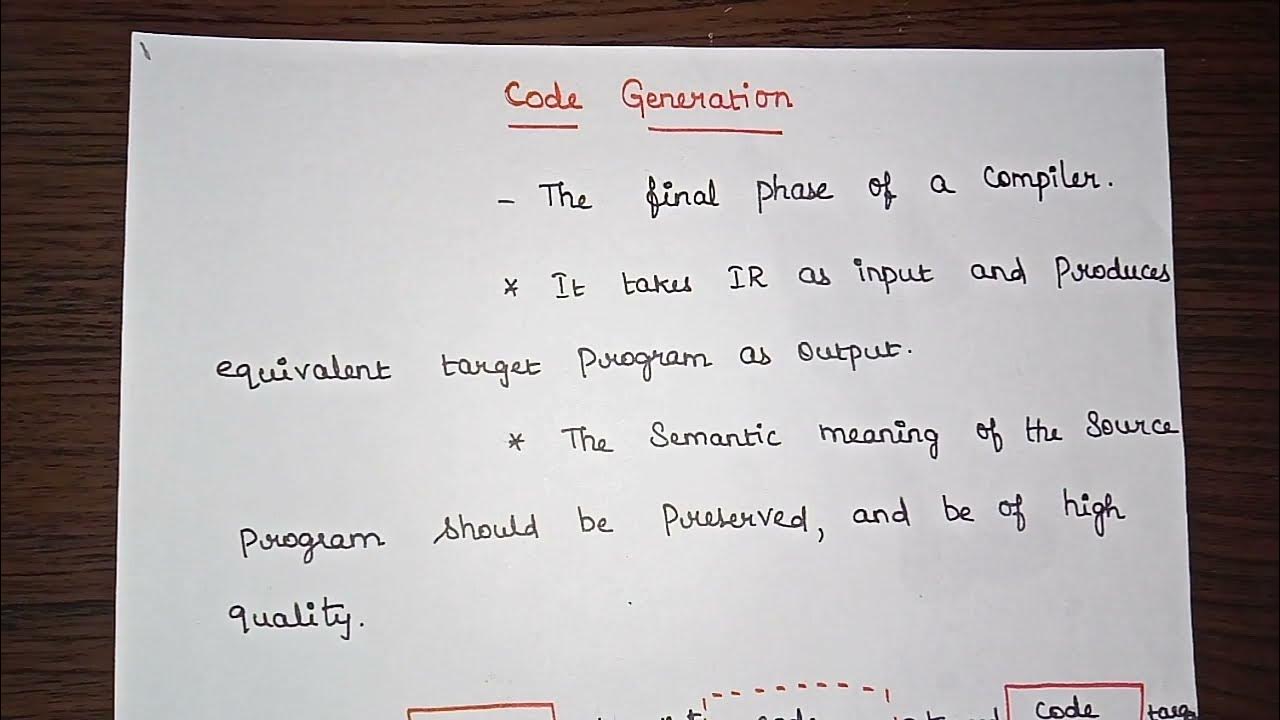 Code Generation
- The final phase of a compiler.
* It takes IR as input and produces
equivalent target program as output.
* The Semantic meaning of the Source
program should be preserved, and be of high
quality.
code code